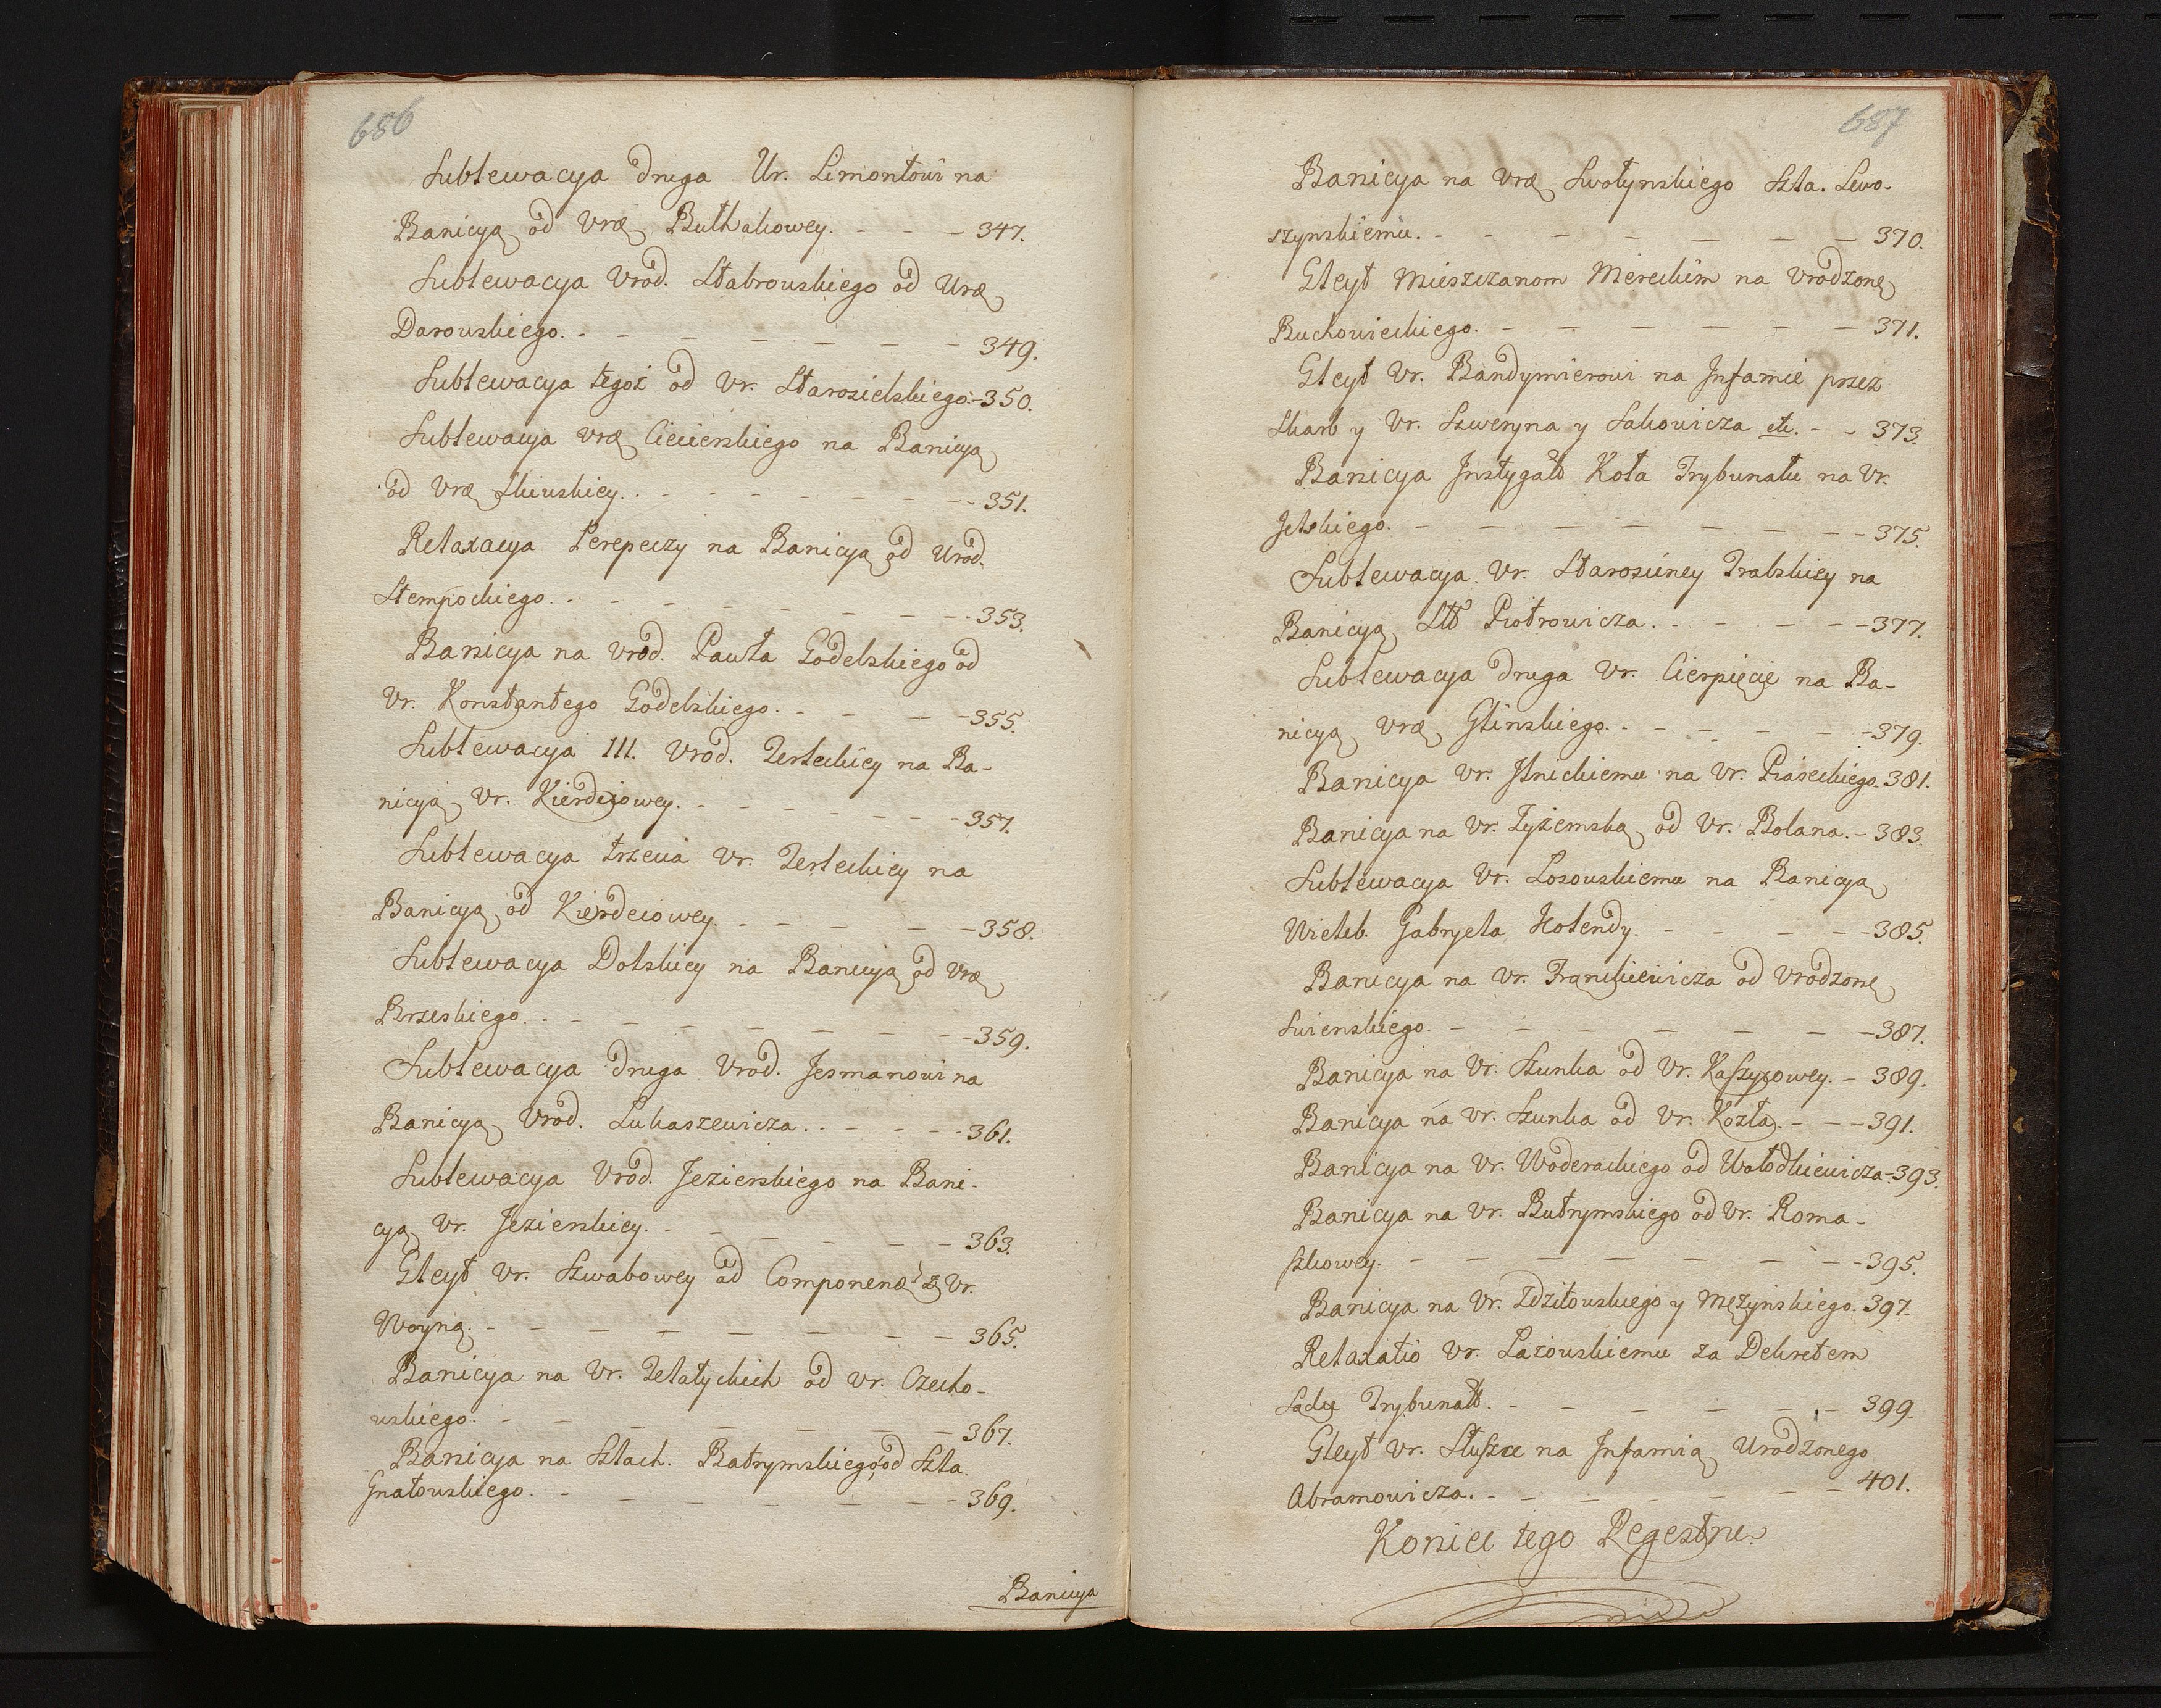 686
Sublewacya druga Ur. Limontowi na
Banicyą od Urę Buthakowey. - - - 347.
Sublewacya Vrod. Stabrowskiego od Urę
Darowskiego. - - - - - - - 349.
Sublewacya tegoż od Vr. Starosielskiego - 350.
Sublewacya Vrę Ciecierskiego na Banicyą
od Vrę Skirskiey. - - - - - - - 351.
Relaxacya Perepeczy na Banicyą od Urod.
Stempockiego. - - - - - - - 353.
Banicya na Vrod. Pawła Godebskiego od
Vr. Konstantego Godebskiego. - - - - 355.
Sublewacya III. Vrod. Terleckiey na Ba-
nicyą Vr. Kierdeiowey. - - - - - - 357.
Sublewacya trzecia Vr. Terleckiey na
Banicyą od Kierdeiowey. - - - - - 358.
Sublewacya Dolskiey na Banicyą od Vrę
Brzeskiego. - - - - - - - - 359.
Sublewacya druga Vrod. Jesmanowi na
Banicyą Vrod. Lukaszewicza. - - - - 361.
Sublewacya Vrod. Jezierskiego na Bani-
cyą Vr. Jezierskiey. - - - - - - 363.
Gleyt Vr. Szwabowey ad Componenđ z Vr.
Woyną. - - - - - - - - 365.
Banicya na Vr. Telatyckich od Vr. Czecho-
wskiego. - - - - - - - 367.
Banicya na Szlach. Batrymskiego od Szla.
Gnatowskiego. - - - - - - - 369.
Banicya
687
Banicya na Vrę Swołynskiego Szla. Lewo-
szynskiemu. - - - - - - - 370.
Gleyt Mieszczanom Mereckim na Vrodzonę
Buchowieckiego. - - - - - - 371.
Gleyt Vr. Bandymierowi na Infamie przez
Skarb y Vr. Szweryna y Sakowicza etc. - - 373.
Banicya Instygatō Koła Trybunału na Vr.
Jelskiego. - - - - - - - - 375.
Sublewacya Vr. Starościney Trabskiey na
Banicyą Piotrowicza. - - - - - 377.
Sublewacya druga Vr. Cierpięcie na Ba-
nicyą Vrę Glinskiego. - - - - - - 379.
Banicya Vr. Ilnickiemu na Vr. Piaseckiego. 381.
Banicya na Vr. Zyżemską od Vr. Bolana. - 383.
Sublewacya Vr. Losowskiemu na Banicyą
Wieleb. Gabryela Kolendy. - - - - 385.
Banicya na Vr. Franckiewicza od Vrodzonę
Swirskiego. - - - - - - - 387.
Banicya na Vr. Szunka od Vr. Kaszycowey. - 389.
Banicya na Vr. Szunka od Vr. Kozła. - - - 391.
Banicya na Vr. Woderackiego od Wołodkiewicza - 393.
Banicya na Vr. Butrymskiego od Vr. Roma-
szkowey. - - - - - - - - 395.
Banicya na Vr. Zdziłowskiego y Mężynskiego. 397.
Relaxatio Vr. Łazowskiemu za Dekretem
Sądu Trybunałō. - - - - - - 399.
Gleyt Vr. Słuszce na Infamią Urodzonego
Abramowicza. - - - - - - - 401.
Koniec tego Regestru.